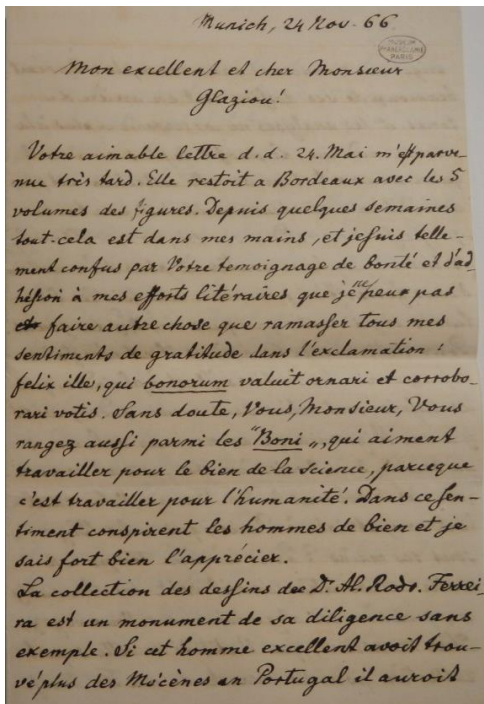 Munich, 24 Nov. 66
MUSEUM
PHANEROGAMIE
PARIS
Mon excellent et cher Monsieur
Glaziou!
Votre aimable lettre d.d. 24. Mai m'est parve-
nue très tard. Elle restoit a Bordeaux avec les 5
volumes des figures. Depuis quelques semaines
tout-cela est dans mes mains, et je suis telle-
ment confus par Votre temoignage de bonté et d'ad-
hésion à mes efforts litéraires que je ne peux pas
faire autre chose que ramasser tous mes
sentiments de gratitude dans l'exclamation:
felix ille, qui bonorum valuit ornari et corrobo-
rari votis. Sans doute, Vous, Monsieur, Vous
rangez aussi parmi les "Boni", qui aiment
travailler pour le bien de la science, parceque
c'est travailler pour l'humanité. Dans ce sen-
timent conspirent les hommes de bien et je
sais fort bien l'apprécier.
La collection des dessins de Dr. Al. Rodr. Ferrei-
ra est un monument de sa diligence sans
exemple. Si cet homme excellent avoit trou-
vé plus des Mécènes en Portugal il auroit